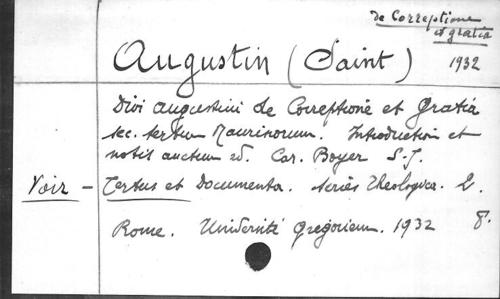 de Correptione
et gratia
Augustin (Saint) 1932
Divi Augustini de Correptione et Gratia
sec. textum Maurinorum. Introduction et
notis auctum ed. Car. Boyer S.J.
Voir - Textus et Documenta. Series Theologica. 2.
Rome. Université Grégorienn. 1932 8.